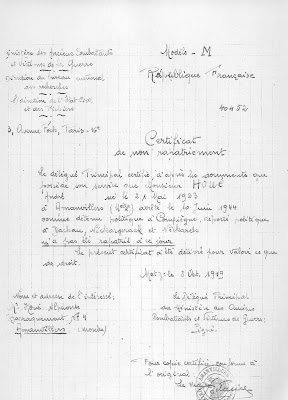 Ministère des Anciens Combattants
et Victimes de la Guerre
Direction du Bureau national
des recherches
Direction de l'Etat Civil
et des
Modèle - M
République Française
40402
3, Avenue Foch, Paris - 16e
Certificat
de non rapatriement
Le délégué Principal certifie, d'après les documents que
possède son service que Monsieur HOUX
né le 21 Mai 1923
à Amanvillers arrêté le 10 Juin 1944
comme détenu politique à Compiègne, déporté politique
à Dachau, Neckargerach et
n'a pas été rapatrié à ce jour
Le présent certificat a été délivré pour valoir ce que
de droit.
Metz, le 8 Oct. 1949
Nom et adresse de l'intéressé:
Mr Houx Alphonse
Baraquement No 4
Amanvillers (Moselle)
Le Délégué Principal
du Ministère des Anciens
Combattants et Victimes de Guerre:
Signé:
Pour copie certifiée conforme à
l'original:
Le maire